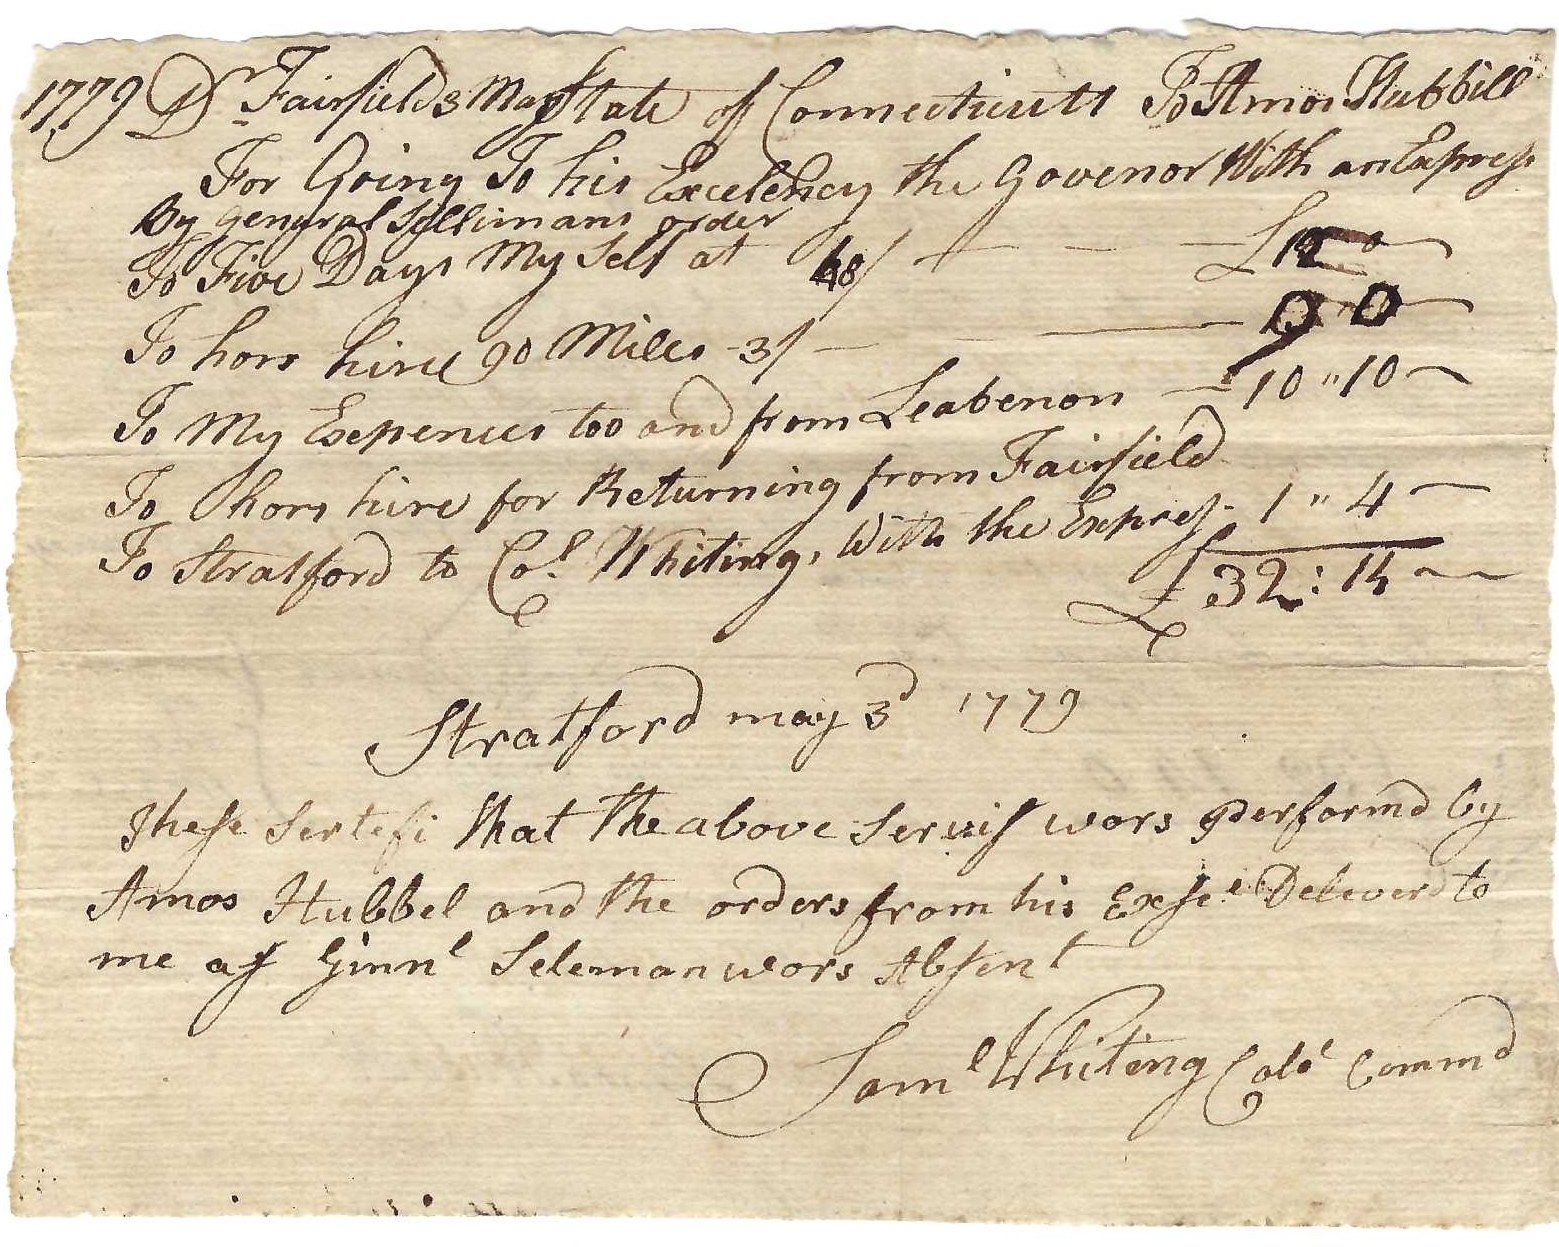 1779 Dr Fairfields May State of Connecticutt To Amos Hubbill
For Going To his Excelency the Govenor With an Express
By general Sillimans order
To Five Days My Self at 48/ — — — £12 0
To hors hire 90 Miles 3/ — — 9 0
To My Expences too and from Leabenon — 10 " 10 —
To hors hire for Returning from Fairfield
To Stratford to Col. Whiting, With the Express. 1 " 4 —
£ 32 : 14 —
Stratford may 3d 1779
These sertefi that the above servis wors performd by
Amos Hubbel and the orders from his Exse Deleverd to
me as Ginnl Seleman wors Absent
Saml Whiting Colo Commd